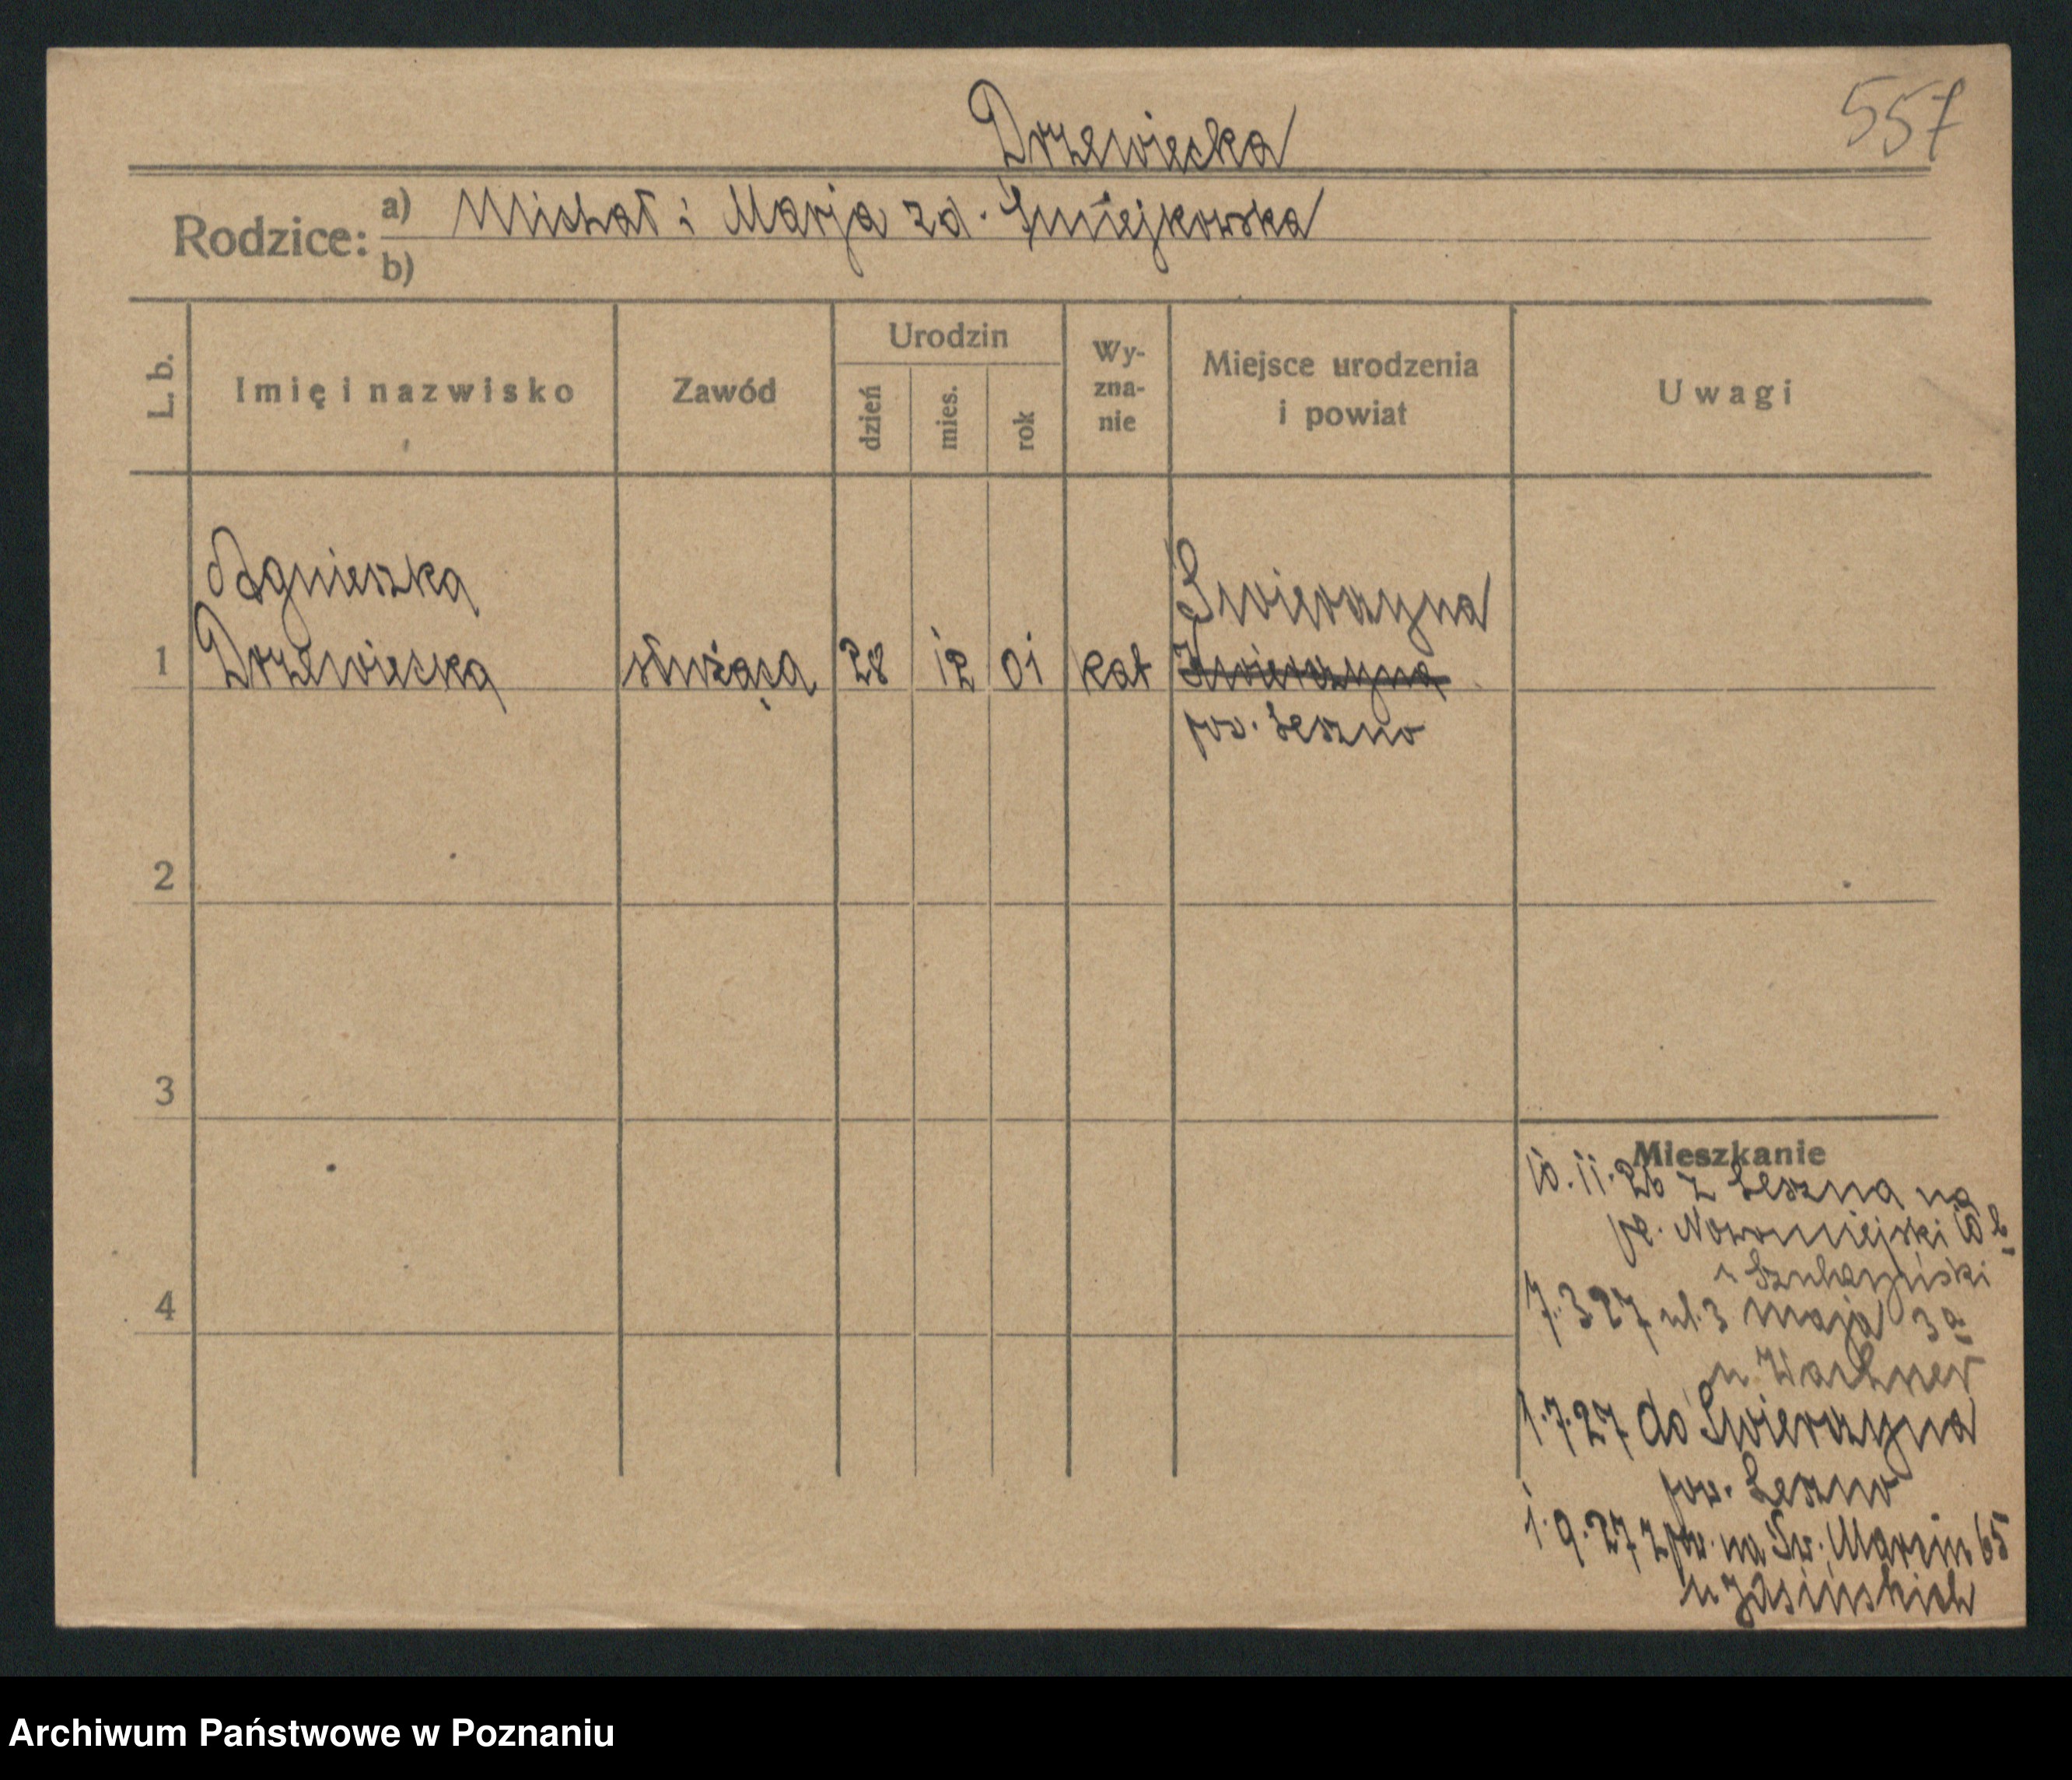 Drzewiecka
557
Rodzice: a) Michał i Marja zd. Śmiejkowska
b)
L. b.
Imię i nazwisko
Zawód
Urodzin
dzień
mies.
rok
Wy-
zna-
nie
Miejsce urodzenia
i powiat
Uwagi
Agnieszka
Swierczyna
1 Drzewiecka służąca 28 12 01 kat Zwierczyna
pow. Leszno
2
3
4
Mieszkanie
10.11.26 z Leszna na
pl. Nowomiejski 10 b
u
7.3.27 ul. 3 Maja 3a
u Wachner
1.7.27 do Swierczyna
pow. Leszno
1.9.27 zpow. na Św. Marcin 65
u Jasińskich
Archiwum Państwowe w Poznaniu